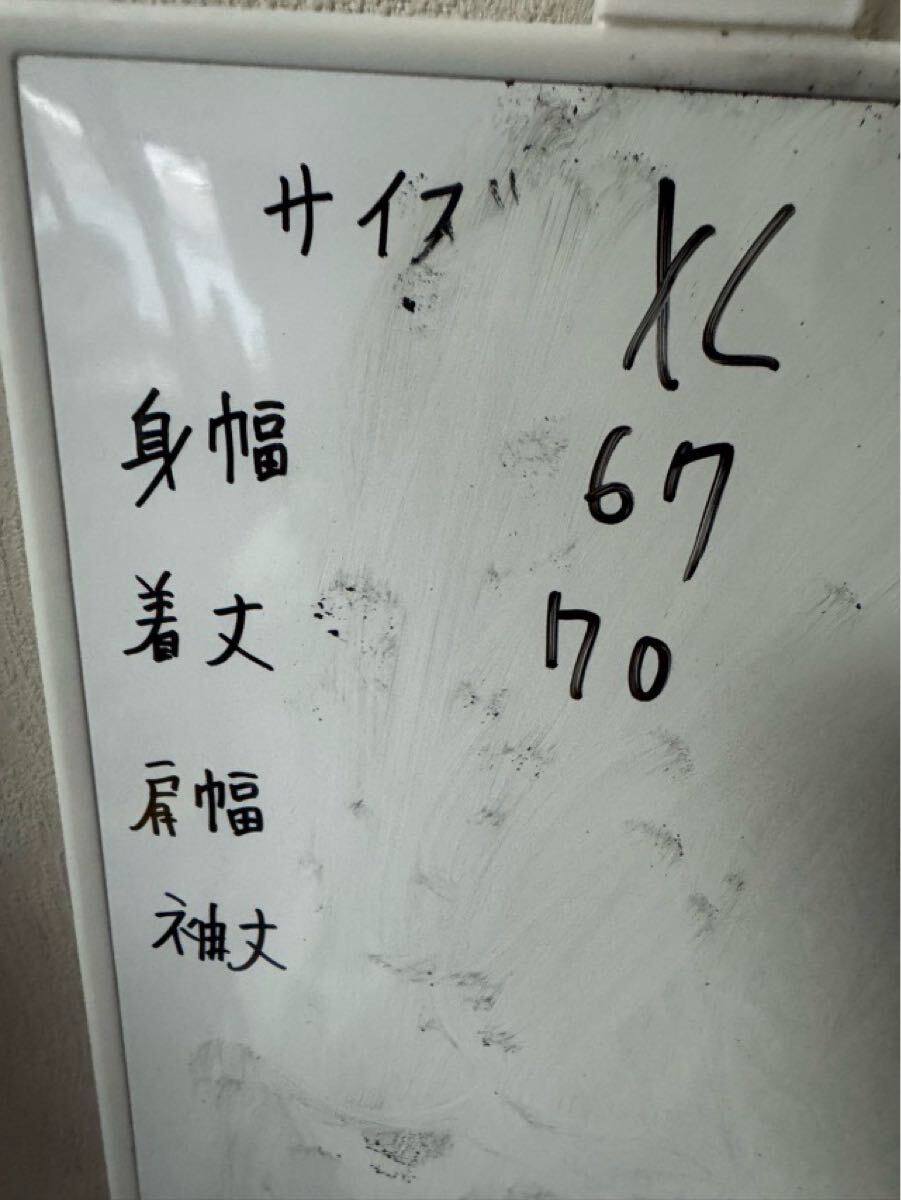 サイズ XL
身幅 67
着丈 70
肩幅
袖丈